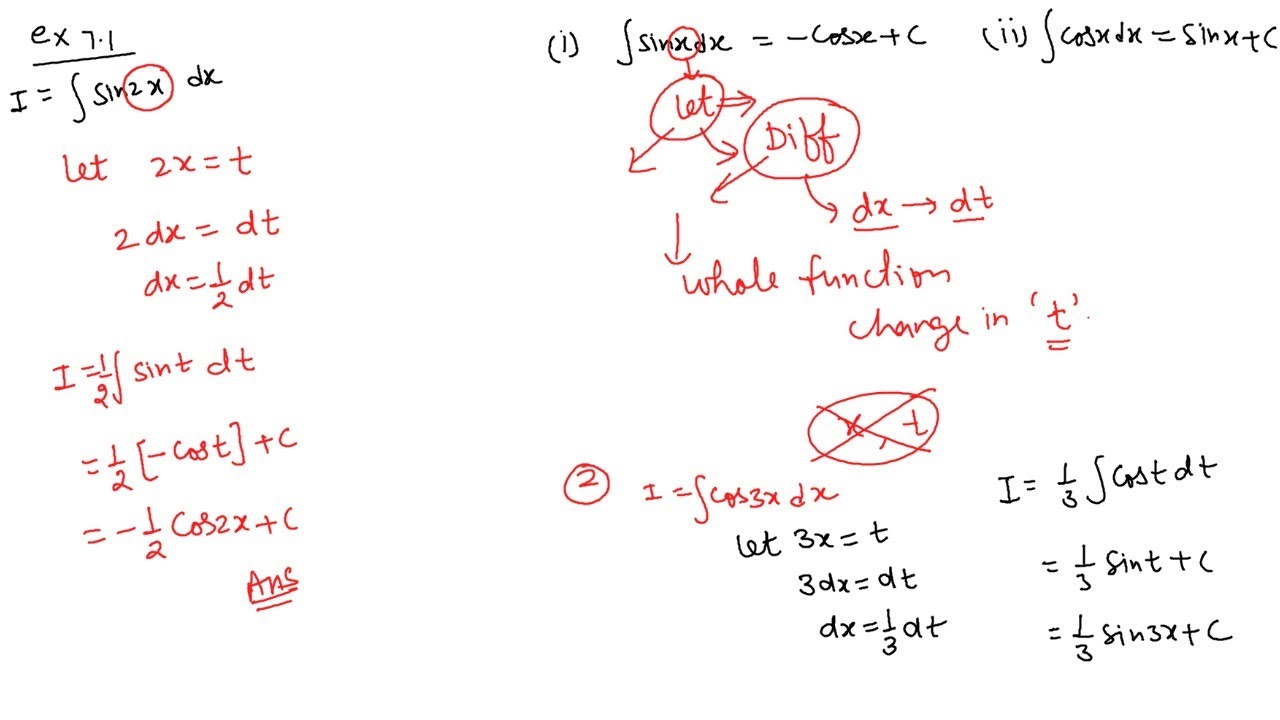 ex 7.1
I = ∫ sin2x dx
let 2x = t
2dx = dt
dx = 1/2 dt
I = 1/2 ∫ sint dt
= 1/2 [-cost] + C
= -1/2 Cos2x + C
Ans
(i) ∫ sinx dx = -Cosx + C (ii) ∫ Cosxdx = Sinx + C
let ⇒
Diff
dx → dt
whole function
change in 't'.
x, t
② I = ∫ Cos3x dx
let 3x = t
3dx = dt
dx = 1/3 dt
I = 1/3 ∫ Cost dt
= 1/3 Sint + C
= 1/3 Sin3x + C